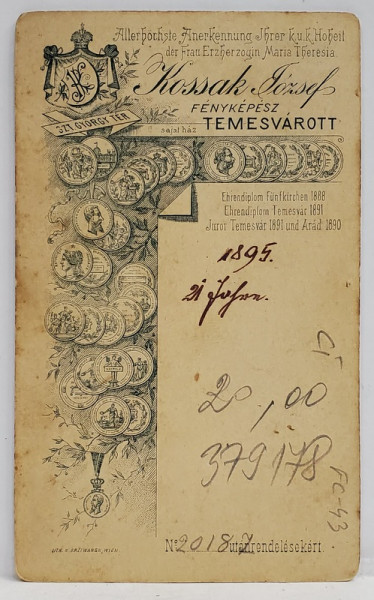 Allerhöchste Anerkennung Ihrer k.u.k. Hoheit
der Frau Erzherzogin Maria Theresia.
Kossak József
FÉNYKÉPÉSZ
SZT GYÖRGY TÉR
saját ház
TEMESVÁROTT
Ehrendiplom Fünfkirchen 1888
Ehrendiplom Temesvár 1891
Juror Temesvár 1891 und Arad 1890
1895.
21 Jahre.
20,00
379178
FC-43
No 20187 utánrendelésekért.